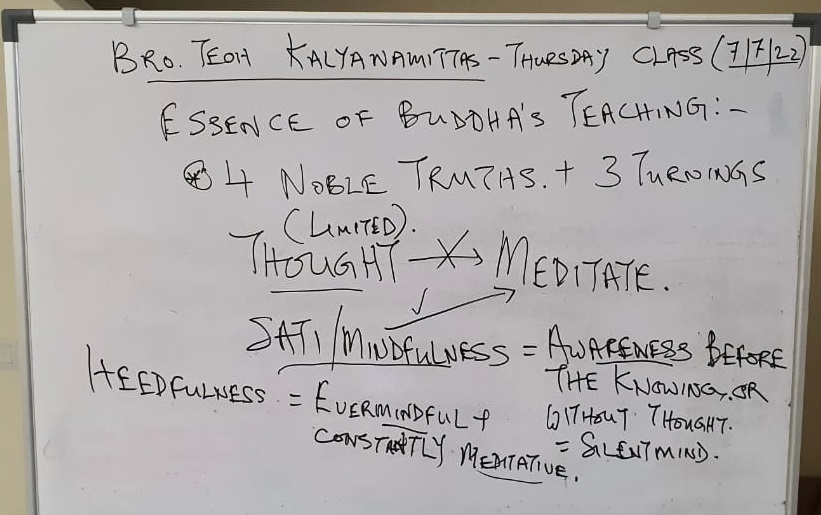 BRO. TEOH KALYANAMITTAS - THURSDAY CLASS (7/7/22)
ESSENCE OF BUDDHA'S TEACHING:-
⊛ 4 NOBLE TRUTHS. + 3 TURNINGS
(LIMITED).
THOUGHT -X-> MEDITATE.
✓
SATI/MINDFULNESS = AWARENESS BEFORE
THE KNOWING, OR
WITHOUT THOUGHT.
= SILENT MIND.
HEEDFULNESS = EVERMINDFUL +
CONSTANTLY MEDITATIVE.